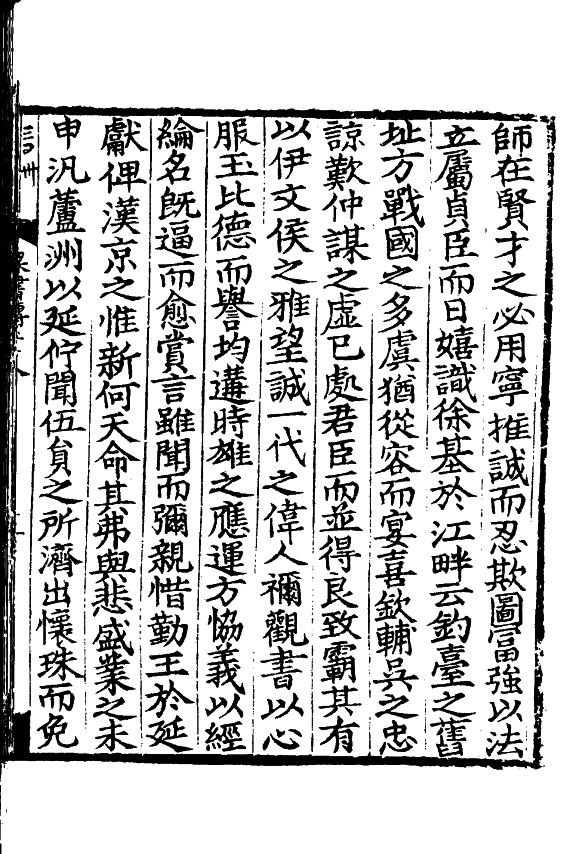 師在賢才之必用寧推誠而忍欺圖富強以法
立屬貞臣而日嬉識徐基於江畔云釣臺之舊
址方戰國之多虞猶從容而宴喜欽輔吳之忠
諒歎仲謀之虛已處君臣而並得良致霸其有
以伊文侯之雅望誠一代之偉人禰觀書以心
服玉比德而譽均遘時雄之應運方恊義以經
綸名旣逼而愈賞言雖聞而彌親惜勤王於延
獻俾漢京之惟新何天命其弗與悲盛業之未
申汎蘆洲以延佇聞伍員之所濟出懷珠而免